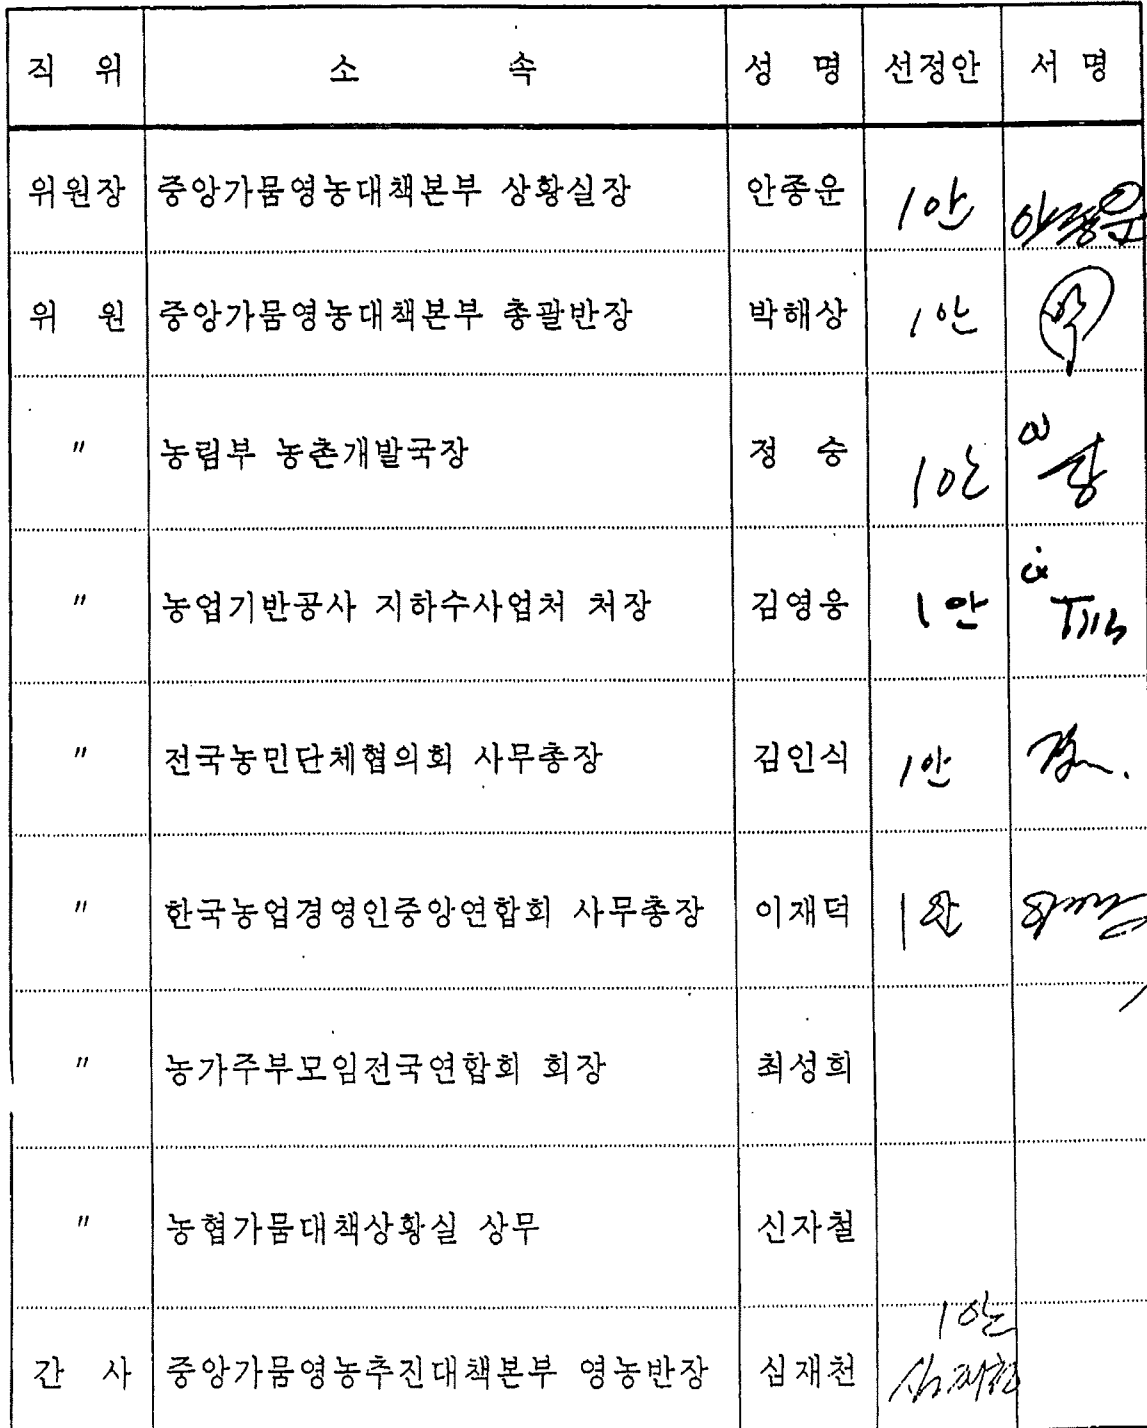 직 위 소 속 성 명 선정안 서 명
위원장 중앙가뭄영농대책본부 상황실장 안종운 1안 안종운
위 원 중앙가뭄영농대책본부 총괄반장 박해상 1안
〃 농림부 농촌개발국장 정 승 1안
〃 농업기반공사 지하수사업처 처장 김영웅 1안
〃 전국농민단체협의회 사무총장 김인식 1안
〃 한국농업경영인중앙연합회 사무총장 이재덕 1안
〃 농가주부모임전국연합회 회장 최성희
〃 농협가뭄대책상황실 상무 신자철
간 사 중앙가뭄영농추진대책본부 영농반장 심재천 1안 심재천